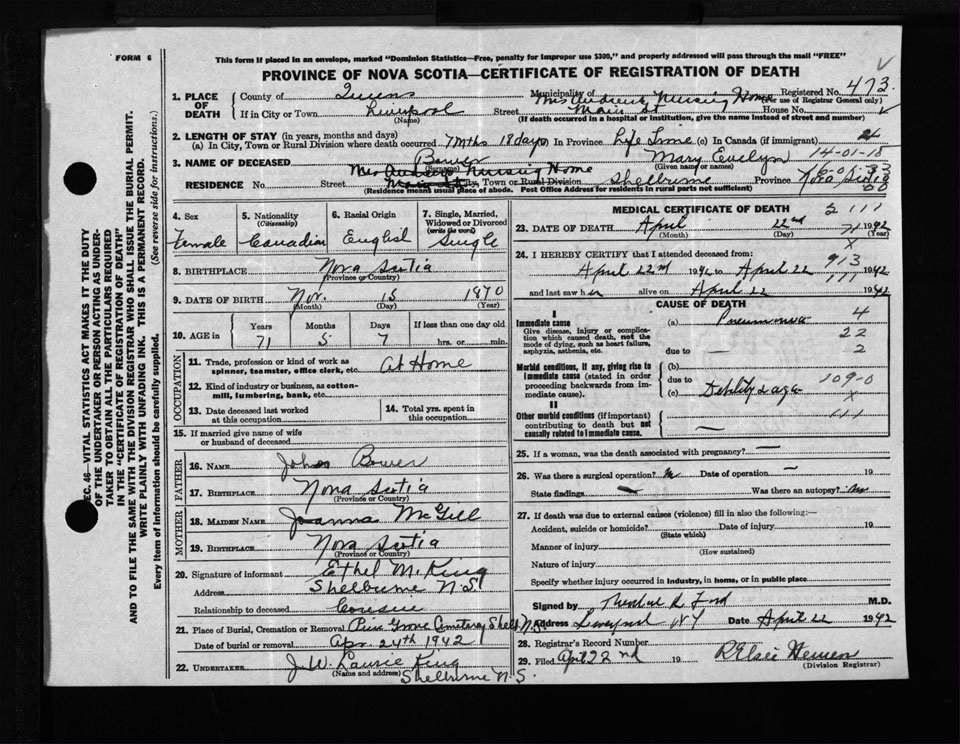 FORM 6
This form if placed in an envelope, marked "Dominion Statistics—Free, penalty for improper use $300," and properly addressed will pass through the mail "FREE"
PROVINCE OF NOVA SCOTIA—CERTIFICATE OF REGISTRATION OF DEATH
SEC. 46—VITAL STATISTICS ACT MAKES IT THE DUTY
OF THE UNDERTAKER OR PERSON ACTING AS UNDER-
TAKER TO OBTAIN ALL THE PARTICULARS REQUIRED
IN THE "CERTIFICATE OF REGISTRATION OF DEATH"
AND TO FILE THE SAME WITH THE DIVISION REGISTRAR WHO SHALL ISSUE THE BURIAL PERMIT.
WRITE PLAINLY WITH UNFADING INK. THIS IS A PERMANENT RECORD.
Every item of information should be carefully supplied. (See reverse side for instructions.)
1. PLACE OF DEATH County of Queens Municipality of Mrs Andrews Nursing Home Registered No. 473
(For use of Registrar General only)
If in City or Town Liverpool Street Main St House No.
(Name) (If death occurred in a hospital or institution, give the name instead of street and number)
2. LENGTH OF STAY (in years, months and days)
(a) In City, Town or Rural Division where death occurred 7 Mths 18 days In Province Life Time (c) In Canada (if immigrant)
3. NAME OF DECEASED Bower Mary Evelyn 14-01-18
(Surname) (Given name or names)
RESIDENCE No. Street Mrs Andrews Nursing Home Main St City, Town or Rural Division Shelburne Province Nova Scotia
(Residence means usual place of abode. Post Office Address for residents in rural parts not sufficient)
4. Sex Female
5. Nationality (Citizenship) Canadian
6. Racial Origin English
7. Single, Married, Widowed or Divorced (write the word) Single
8. BIRTHPLACE Nova Scotia
(Province or Country)
9. DATE OF BIRTH Nov. 15 1870
(Month) (Day) (Year)
10. AGE in Years Months Days If less than one day old
71 5 7 hrs. or min.
OCCUPATION
11. Trade, profession or kind of work as spinner, teamster, office clerk, etc. At Home
12. Kind of industry or business, as cotton-mill, lumbering, bank, etc.
13. Date deceased last worked at this occupation
14. Total yrs. spent in this occupation.
15. If married give name of wife or husband of deceased
FATHER
16. NAME John Bower
17. BIRTHPLACE Nova Scotia
(Province or Country)
MOTHER
18. MAIDEN NAME Joanna McGill
19. BIRTHPLACE Nova Scotia
(Province or Country)
20. Signature of informant Ethel M. King
Address Shelburne N.S.
Relationship to deceased Cousin
21. Place of Burial, Cremation or Removal Pine Grove Cemetery Shelb. N.S.
Date of burial or removal Apr 24th 1942
22. UNDERTAKER J. W. Laurie King
(Name and address) Shelburne N.S.
MEDICAL CERTIFICATE OF DEATH
23. DATE OF DEATH April 22nd 1942
(Month) (Day) (Year)
24. I HEREBY CERTIFY that I attended deceased from:
April 22nd 1942 to April 22 1942
and last saw her alive on April 22 1942
CAUSE OF DEATH
I
Immediate cause
Give disease, injury or complication which caused death, not the mode of dying, such as heart failure, asphyxia, asthenia, etc.
(a) Pneumonia 4
22
due to — 2
Morbid conditions, if any, giving rise to immediate cause (stated in order proceeding backwards from immediate cause).
(b)
due to
(c) Debility & age 109-0
II
Other morbid conditions (if important) contributing to death but not causally related to immediate cause. 111
25. If a woman, was the death associated with pregnancy? —
26. Was there a surgical operation? no Date of operation — 19
State findings — Was there an autopsy? no
27. If death was due to external causes (violence) fill in also the following:—
Accident, suicide or homicide? Date of injury 19
(State which)
Manner of injury
(How sustained)
Nature of injury
Specify whether injury occurred in industry, in home, or in public place
Signed by R Ford M.D.
Address Liverpool Date April 22 1942
28. Registrar's Record Number
29. Filed April 22nd 19 R Elsie
(Division Registrar)